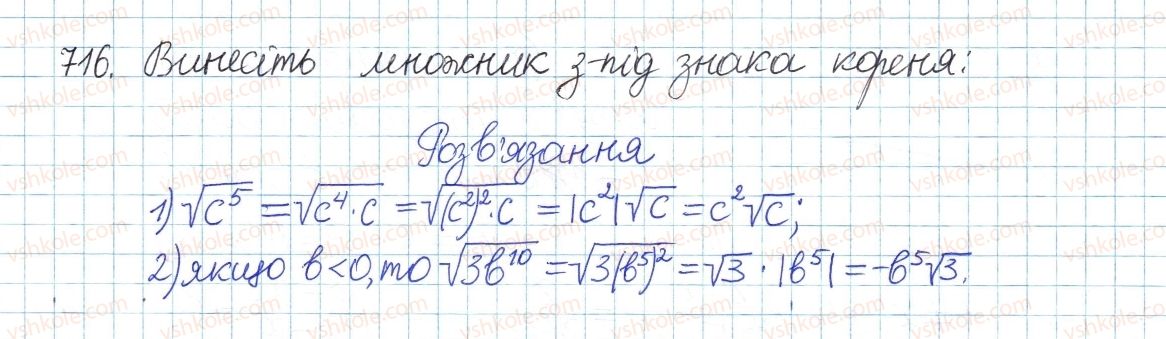 716. Винесіть множник з-під знака кореня:
Розв'язання
1) √c⁵ = √c⁴·c = √(c²)²·c = |c²|√c = c²√c;
2) якщо b<0, то √3b¹⁰ = √3(b⁵)² = √3 · |b⁵| = -b⁵√3.